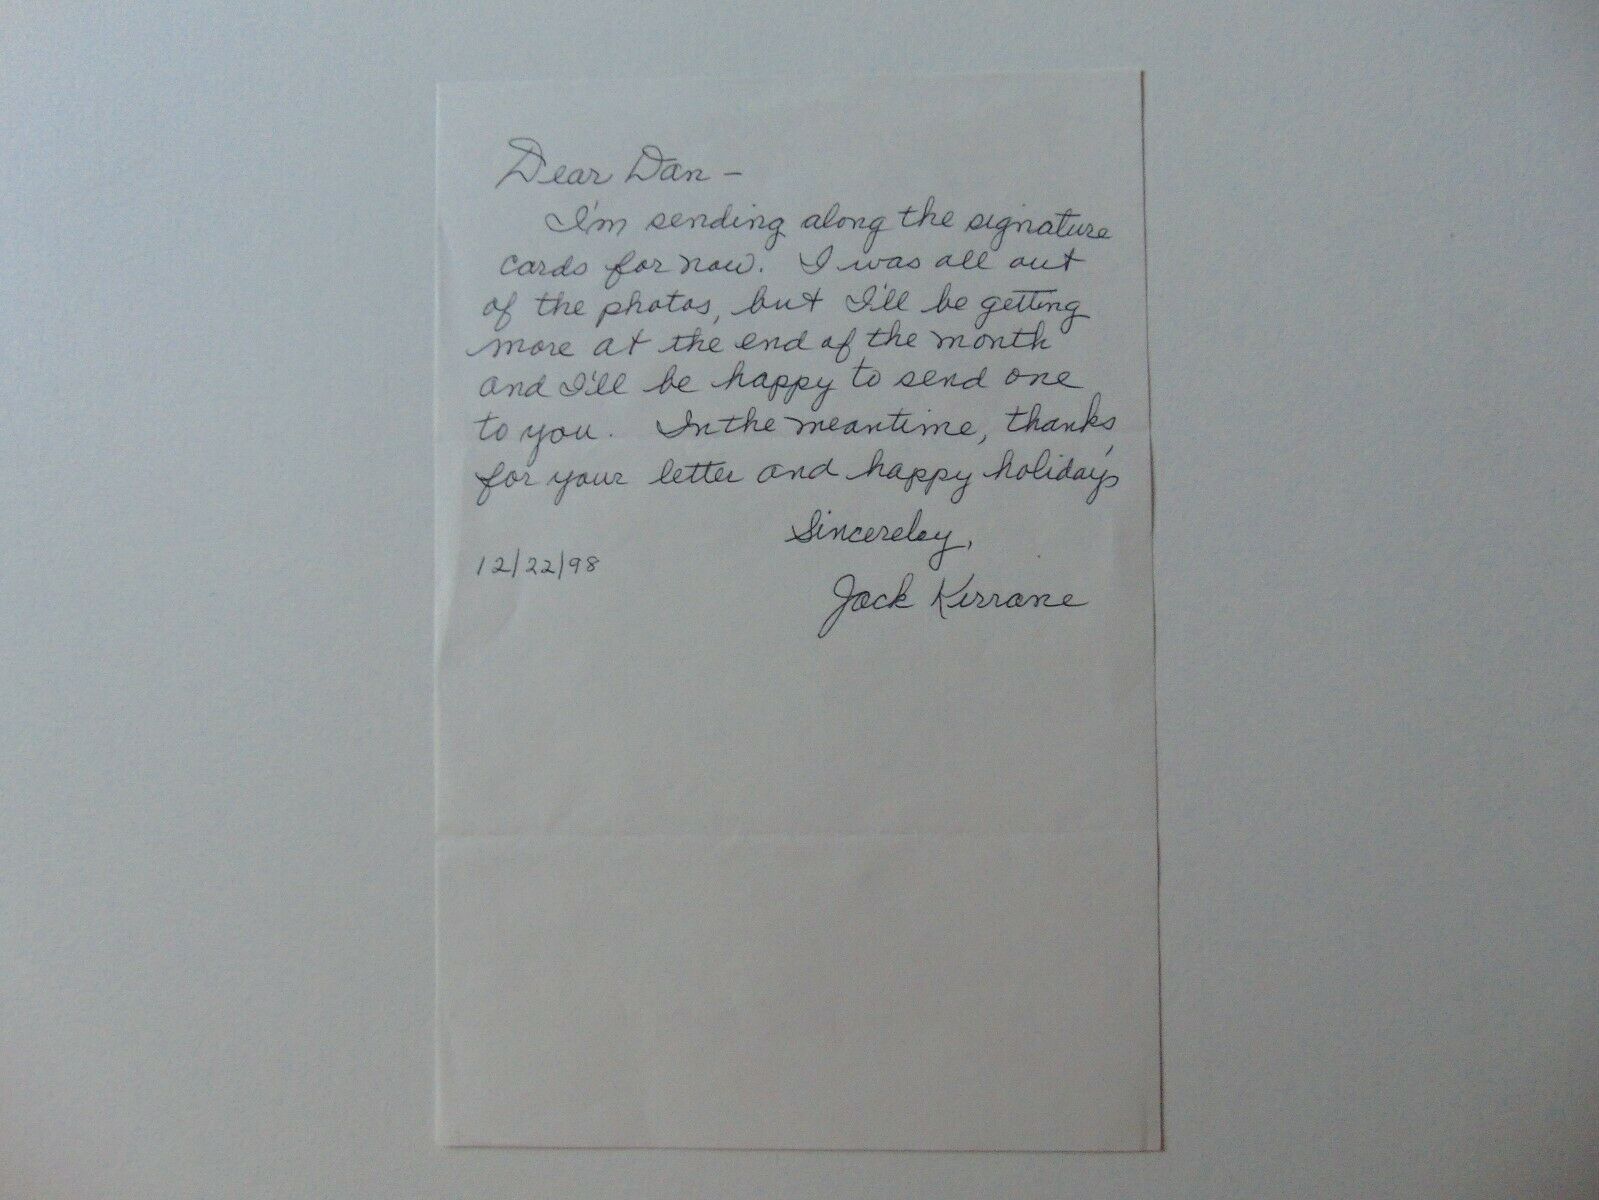 Dear Dan -
I'm sending along the signature
cards for now. I was all out
of the photos, but I'll be getting
more at the end of the month
and I'll be happy to send one
to you. In the meantime, thanks
for your letter and happy holidays
Sincereley,
12/22/98
Jack Kirrane